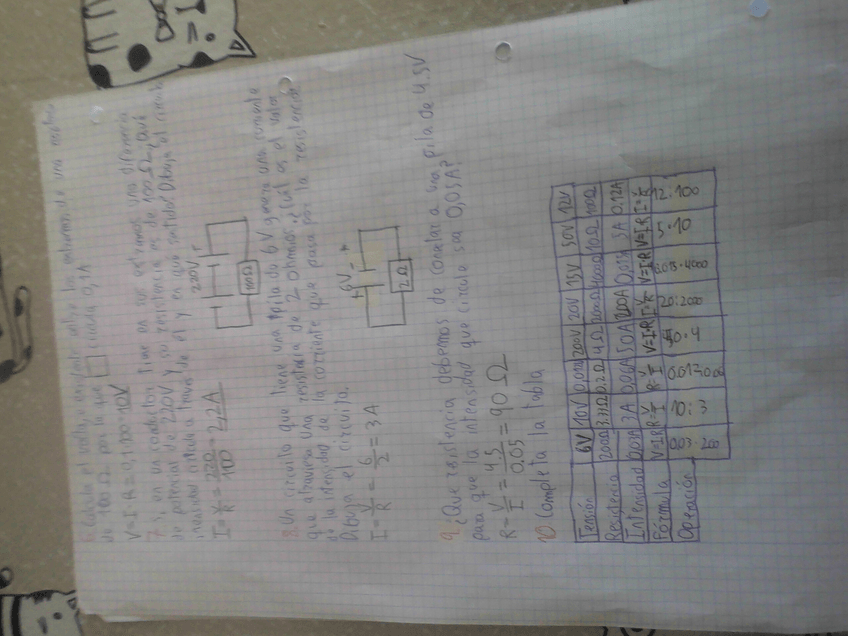 6. Calcula el voltaje existente entre los extremos de una
de 100 Ω por la que circula 0,1A
V = I·R = 0,1·100 = 10V
7. Si en un conductor tiene en sus extremos una diferencia
de potencial de 220V y su resistencia es de 100 Ω ¿Qué
intensidad circula a través de él y en qué sentido? Dibuja el circuito
I = V/R = 220/100 = 2,2A
220V
100Ω
8. Un circuito que tiene una pila de 6V genera una corriente
que atraviesa una resistencia de 2 ohmios ¿Cuál es el valor
de la intensidad de la corriente que pasa por la resistencia
Dibuja el circuito.
I = V/R = 6/2 = 3A
+ 6V -
2 Ω
9. ¿Que resistencia debemos de conectar a una pila de 4.5V
para que la intensidad que circule sea 0,05A?
R = V/I = 4.5/0.05 = 90 Ω
10. Completa la tabla
Tensión 6V 10V 200V 20V 50V 12V
Resistencia 200Ω 0.2Ω 4Ω 10Ω 100Ω
Intensidad 3A 50A 5A 0,12A
Fórmula V=I·R R=V/I R=V/I V=I·R I=V/R V=I·R V=I·R I=V/R
Operación 0.03·200 10:3 20:2000 5·10 12:100